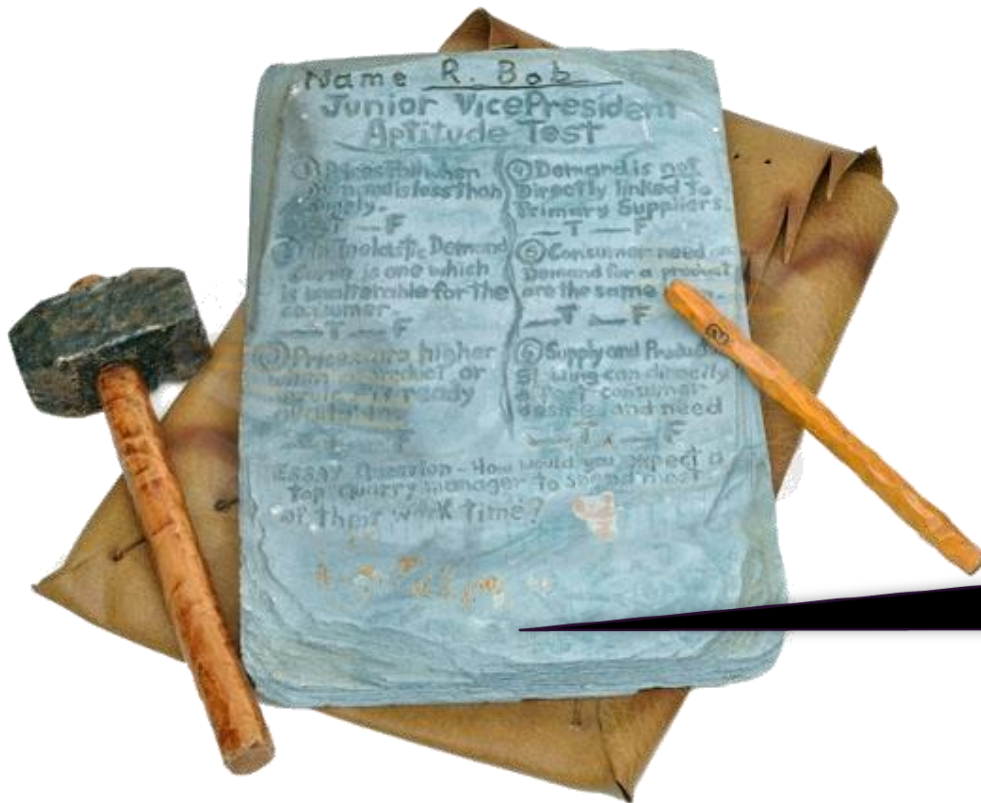 Name R. Bob
Junior Vice President
Aptitude Test
① Prices fall when
demand is less than
supply.
T F
Inelastic Demand
Curve is one which
is unalterable for the
consumer.
T F
Prices are higher
when product or
is ready
T
④ Demand is not
Directly linked to
Primary Suppliers.
T F
⑤ Consumer need
Demand for a product
are the same
T F
⑥ Supply and
can directly
consumer
desire and need
T F
Essay Question - How would you expect a
top quarry manager to spend most
of their work time?